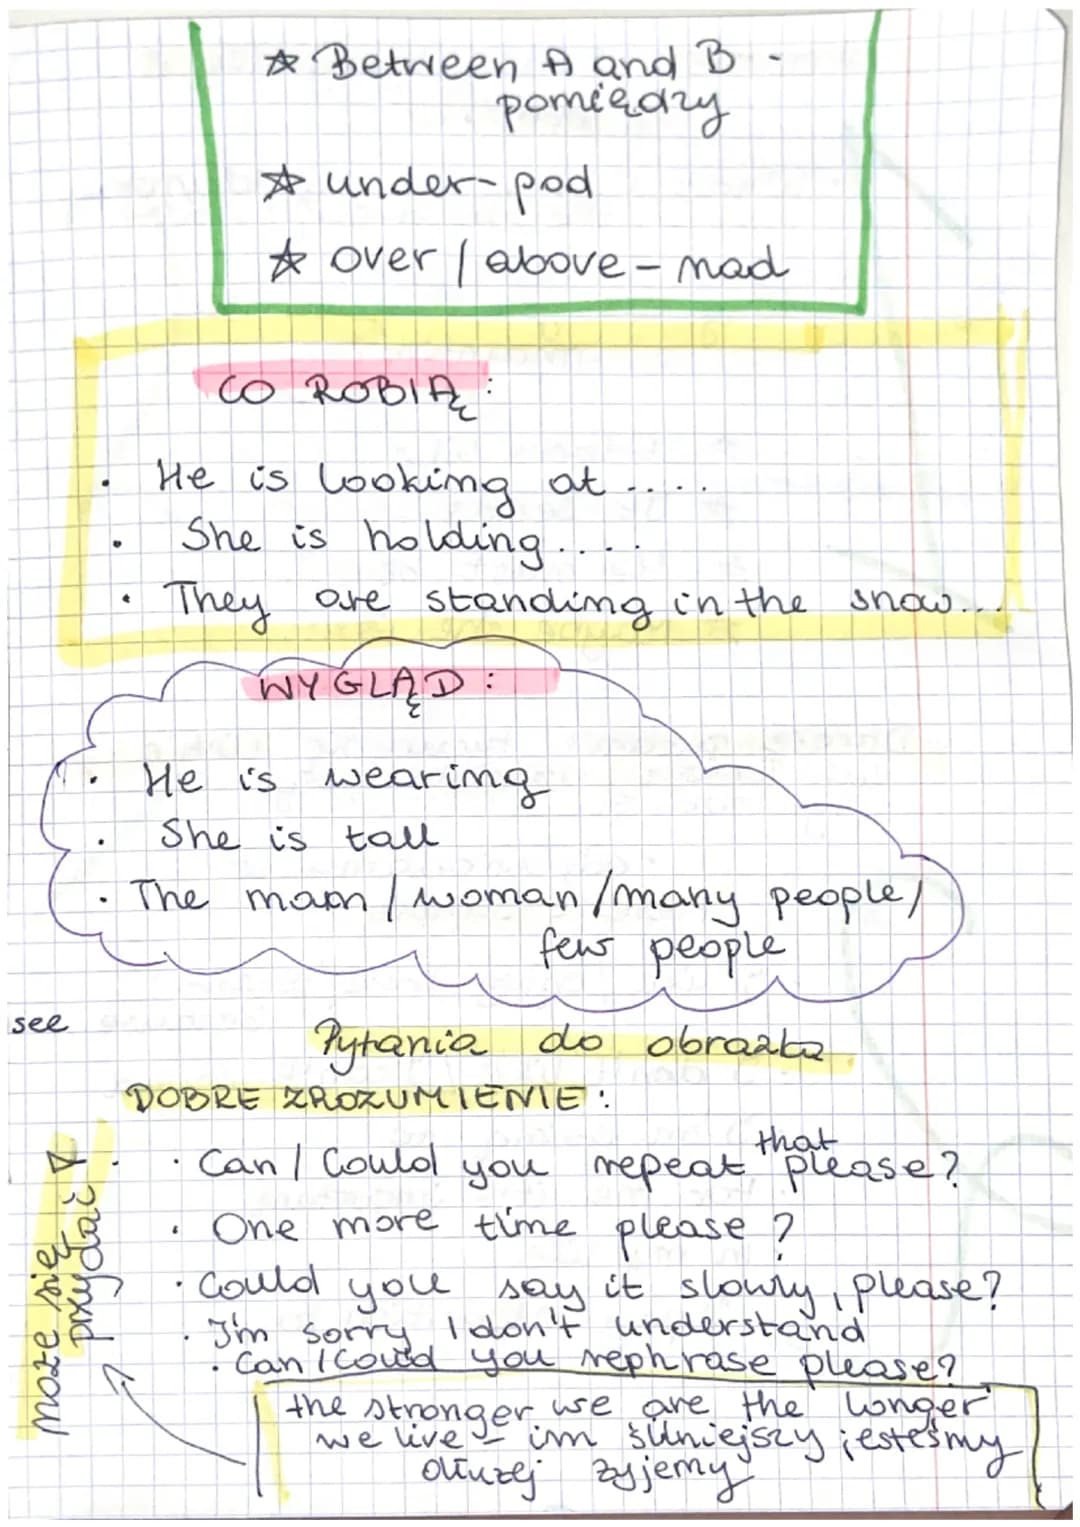 ☆ Between A and B -
pomiędzy
☆ under - pod
☆ over / above - nad
CO ROBIĄ:
· He is looking at ....
· She is holding....
· They are standing in the snow...
WYGLĄD:
· He is wearing
· She is tall
· The man / woman / many people /
few people
see
Pytania do obrazka
DOBRE ZROZUMIENIE:
· Can / Could you repeat that please?
· One more time please?
· Could you say it slowly, please?
· I'm sorry I don't understand
· Can / Could you rephrase please?
może się
przydać
the stronger we are the longer
we live - im silniejszy jesteśmy
dłużej żyjemy